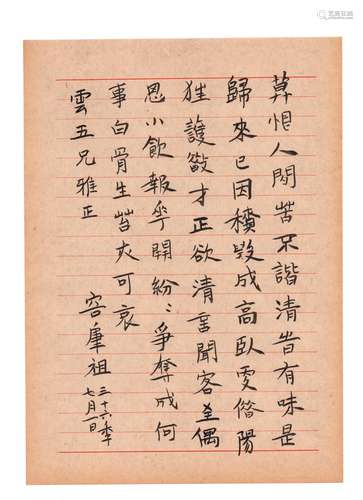 莫恨人間苦不諧清旹有味是
歸來已因積毀成高臥更借陽
狂護散才正欲清言聞客至偶
思小飲報華開紛紛爭奪成何
事白骨生苔亦可哀
雲五兄雅正
容肇祖
三十六年
七月一日
www.51bidlive.com